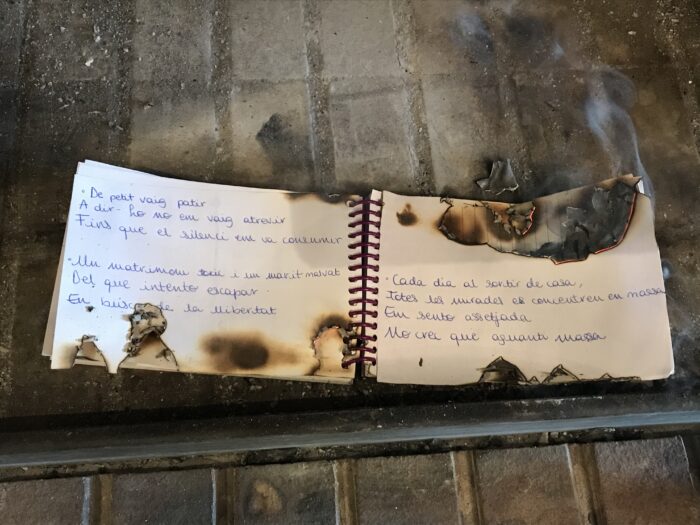 • De petit vaig patir
A dir-ho no em vaig atrevir
Fins que el silenci em va consumir
• Un matrimoni i un marit malvat
Del que intento escapar.
En busca de la llibertat
• Cada dia al sortir de casa,
Totes les mirades es concentren en massa
Em sento assetjada
No crec que aguanti massa